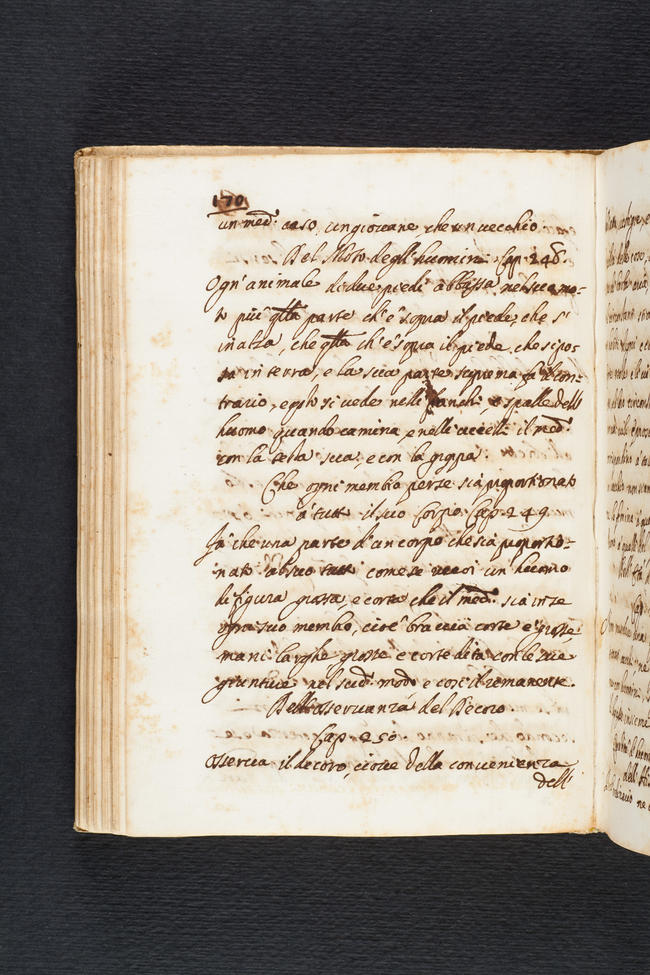 170
un med.º caso, un giovane, che un vecchio.
Del Moto degl'huomini. Cap. 248.
Ogn'animale di due piedi abbassa nel suo mo-
to più q.lla parte ch'è sopra il piede, che s'
inalza, che q.lla ch'è sopra il piede, che si po-
sa in terra, e la sua parte suprema fa il con-
trario, e q.sto si vede nelli fianchi, e spalle dell'
huomo quando camina, e nelli uccelli il med.º
con la testa sua, e con la groppa.
Che ogni membro per se sia proportionato
a tutto il suo Corpo. Cap. 249.
Fà che una parte d'un corpo che sia proportio-
nato al suo tutto come se vuoi un huomo
di figura grossa, e corta che il med.º sia in se
ogni suo membro, cioè braccia corte e grosse
mani larghe, grosse e corte dita con le sue
giunture nel sud.º modo e così il remanente.
Dell'osservanza del Decoro.
Cap. 250.
Osserva il decoro, cioè della convenienza
dell'